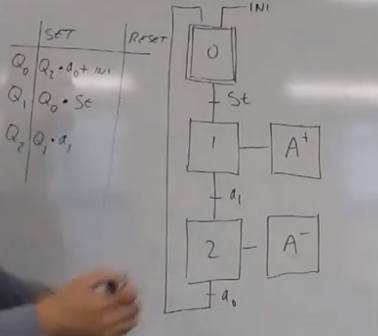 SET RESET
Q0 Q2·a0+INI
Q1 Q0·St
Q2 Q1·a1
INI
0
St
1 A+
a1
2 A-
a0